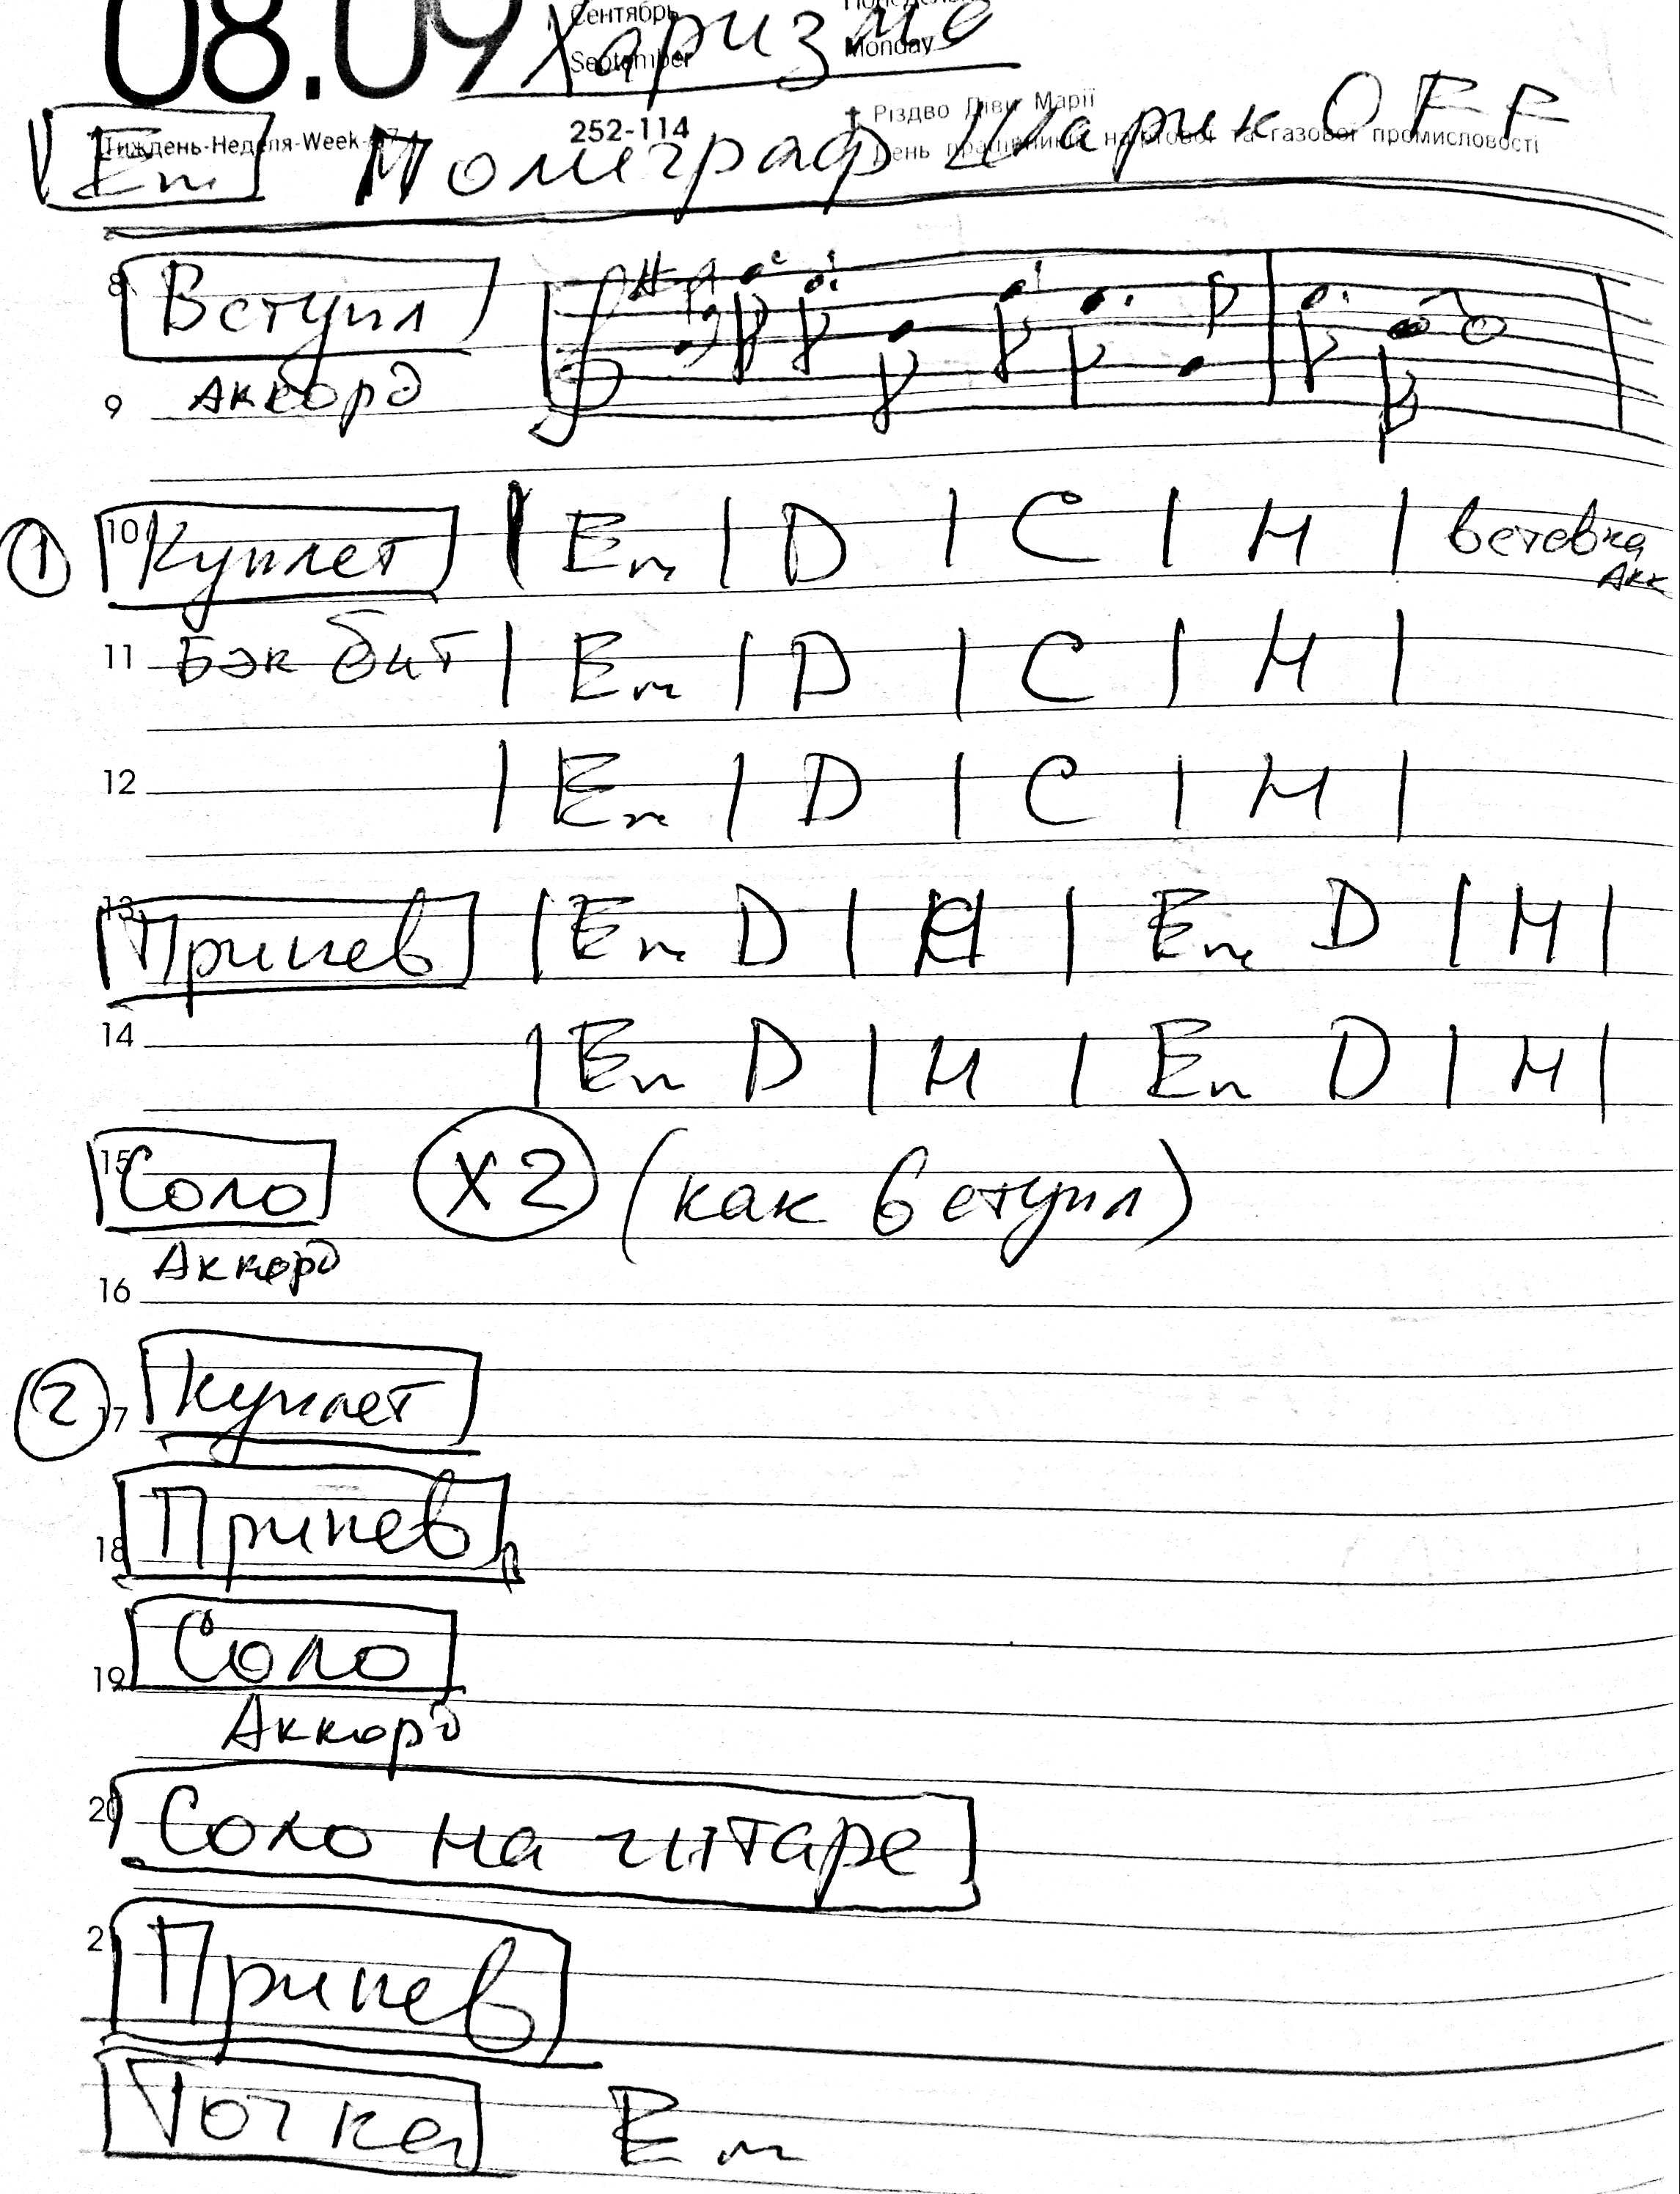 08.09 Сентябрь
September Monday
Харизма
Тиждень-Неделя-Week 252-114 Різдво Діви Марії
День працівників нафтової та газової промисловості
Em Полиграф Шарик OFF
8 Вступл
9 Аккорд
① 10 Куплет | Em | D | C | H | вставка Акк
11 Бэк бит | Em | D | C | H |
12 | Em | D | C | H |
13 Припев | Em D | H | Em D | H |
14 | Em D | H | Em D | H |
15 Соло X2 (как вступл)
Аккорд
16
② 17 Куплет
18 Припев
19 Соло
Аккорд
20 Соло на гитаре
21 Припев
Точка Em